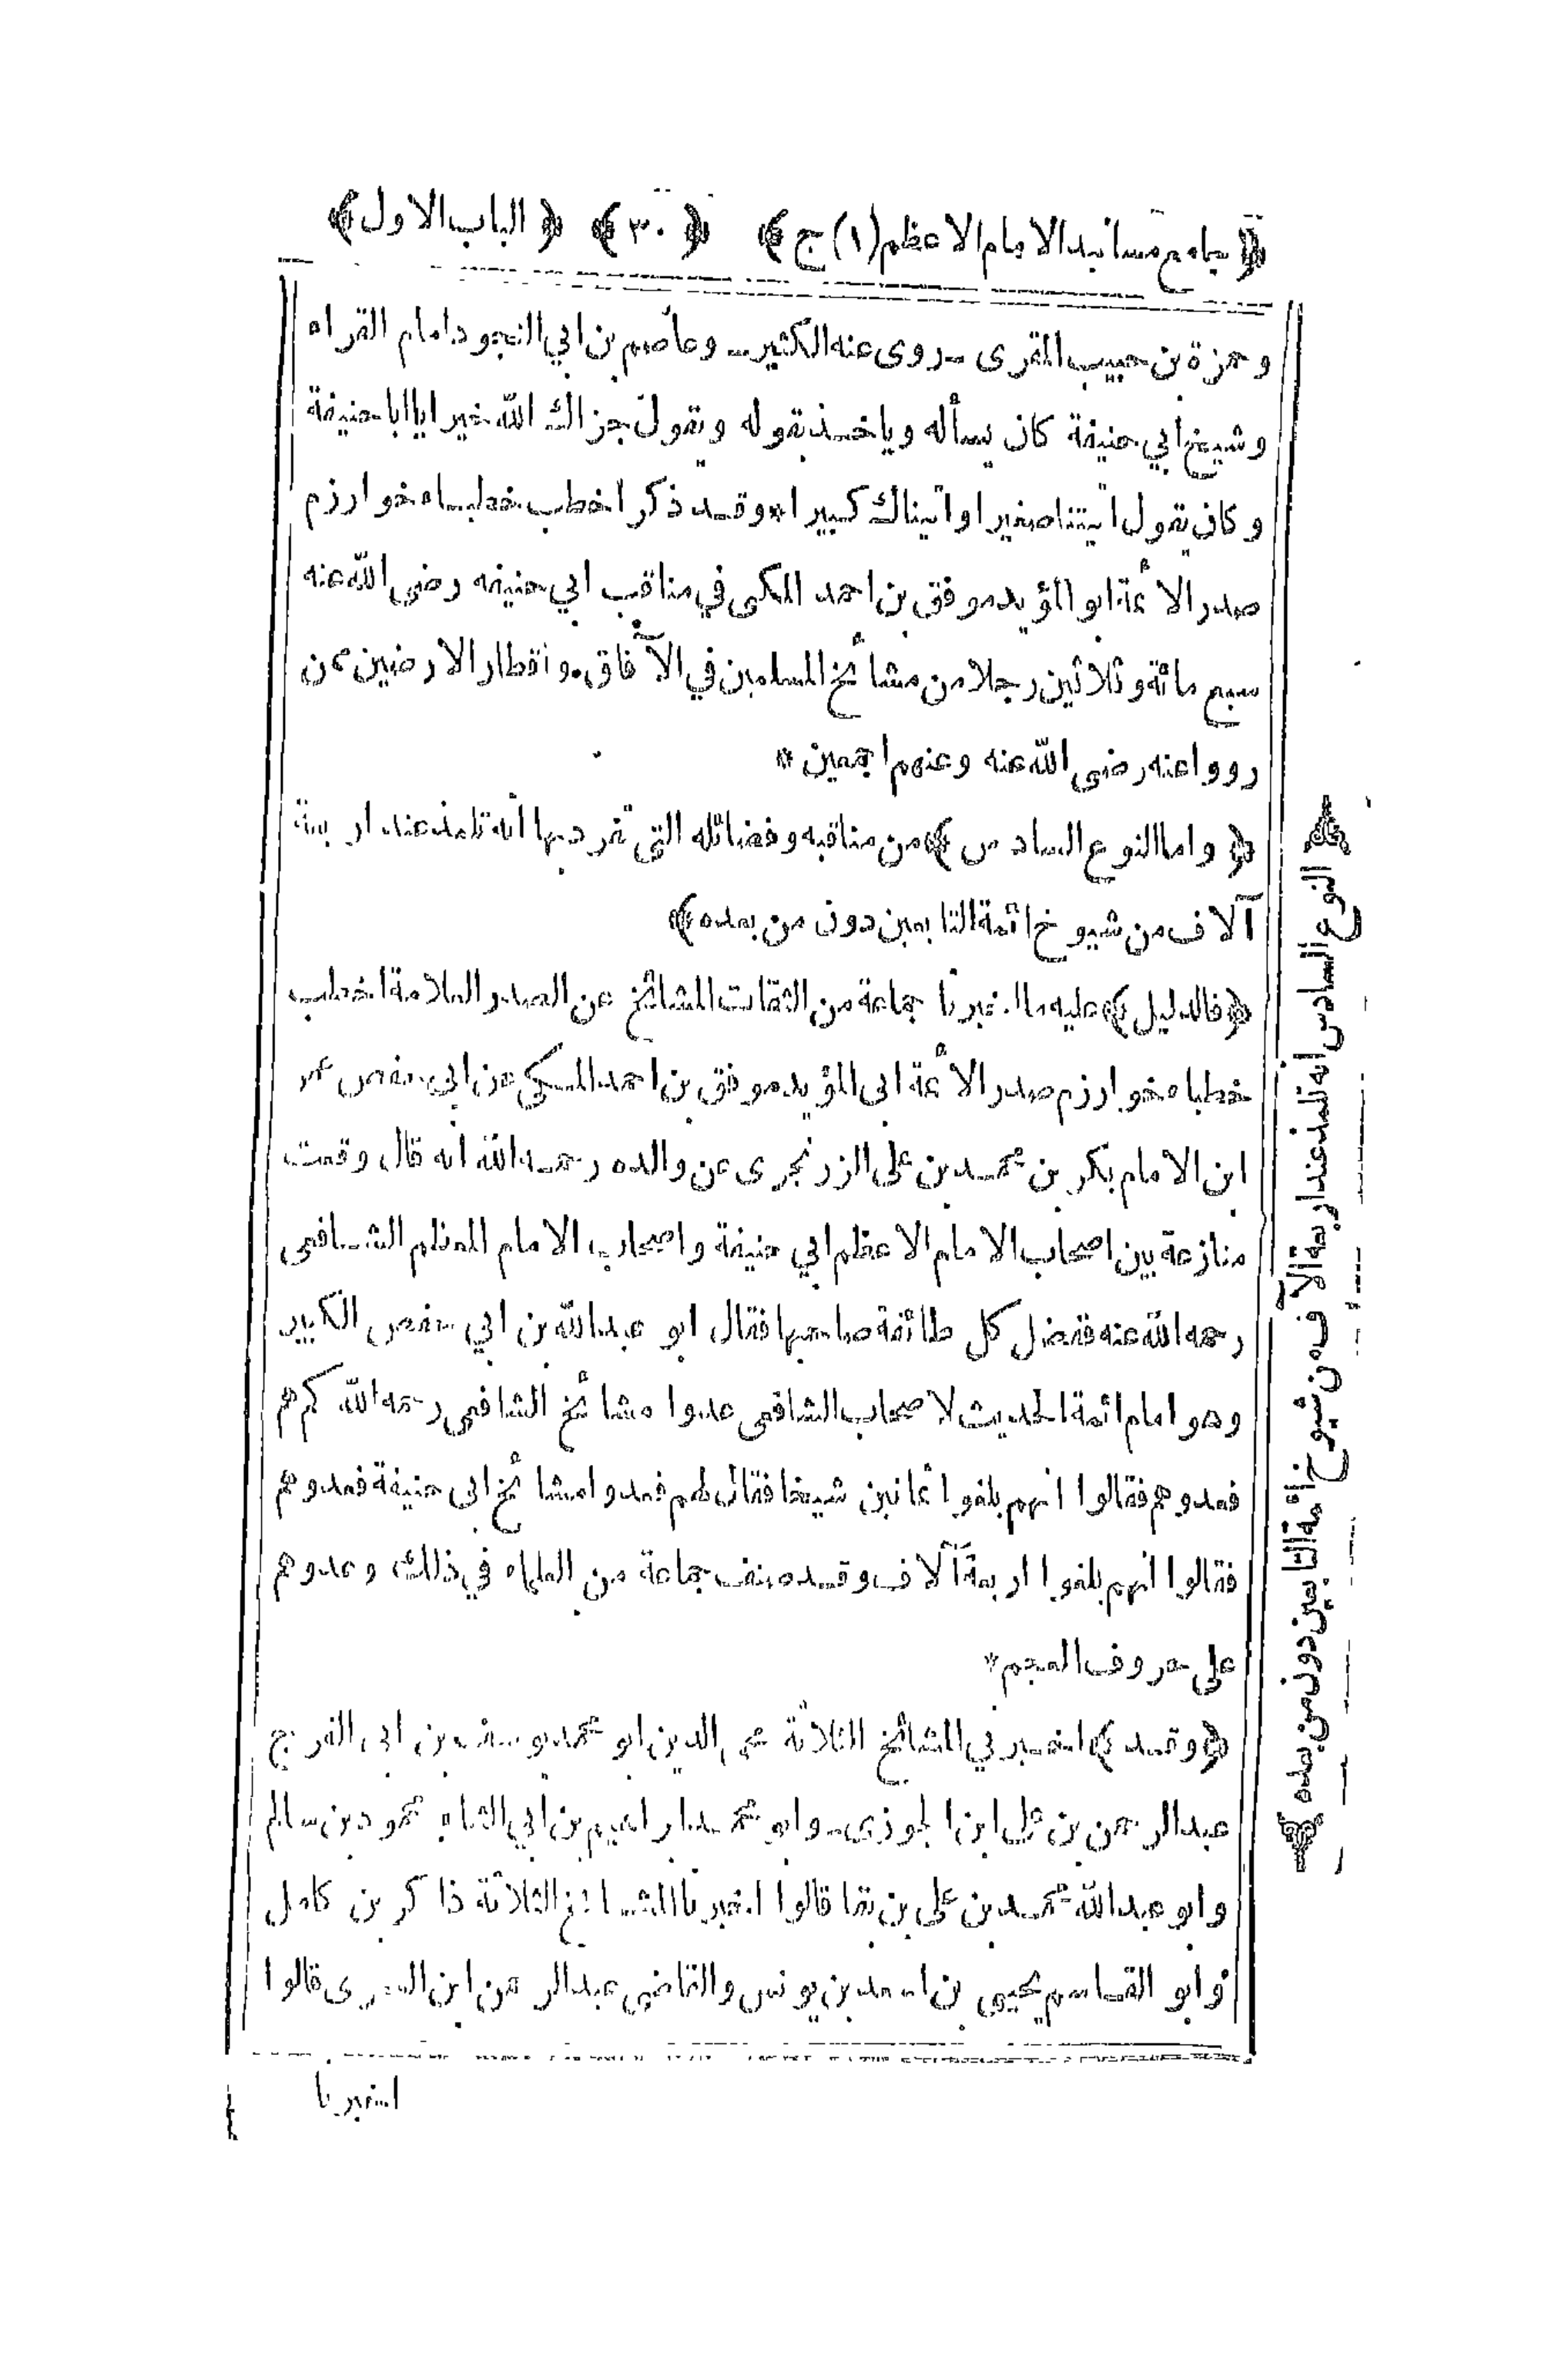 ﴿ جامع مسانيد الامام الاعظم (١) ج ﴾ ﴿ ٣٠ ﴾ ﴿ الباب الاول ﴾
وحمزة بن حبيب المقرى ـ روى عنه الكثير ـ وعاصم بن ابي النجود امام القراء
وشيخ ابي حنيفة كان يسأله ويأخذ بقوله ويقول جزاك الله خيرا يا ابا حنيفة
وكان يقول اتيتنا صغيرا واتيناك كبيرا * وقد ذكر اخطب خطباء خوارزم
صدر الائمة ابو المؤيد موفق بن احمد المكى في مناقب ابي حنيفه رضى الله عنه
سبع مائة وثلاثين رجلا من مشائخ المسلمين في الآفاق. واقطار الارضين ممن
رووا عنه رضى الله عنه وعنهم اجمعين *
﴿ واما النوع السادس ﴾ من مناقبه وفضائله التى تفرد بها انه تلمذ عند اربعة
آلاف من شيوخ ائمة التابعين دون من بعده ﴾
﴿ فالدليل ﴾ عليه ما اخبرنا جماعة من الثقات المشائخ عن الصدر العلامة اخطب
خطباء خوارزم صدر الائمة ابى المؤيد موفق بن احمد المكي عن ابى حفص عمر
ابن الامام بكر بن محمد بن على الزرنجرى عن والده رحمه الله انه قال وقعت
منازعة بين اصحاب الامام الاعظم ابي حنيفة واصحاب الامام المعظم الشافعى
رحمه الله عنه ففضل كل طائفة صاحبها فقال ابو عبد الله بن ابي حفص الكبير
وهو امام ائمة الحديث لاصحاب الشافعى عدوا مشائخ الشافعى رحمه الله كم هم
فعدوهم فقالوا انهم بلغوا ثمانين شيخا فقال لهم فعدوا مشائخ ابى حنيفة فعدوهم
فقالوا انهم بلغوا اربعة آلاف وقد صنف جماعة من العلماء في ذلك وعدوهم
على حروف المعجم *
﴿ وقد ﴾ اخبرني المشائخ الثلاثة محى الدين ابو محمد يوسف بن ابى الفرج
عبد الرحمن بن على ابن الجوزى ـ وابو محمد ابراهيم بن ابي الثناء محمود بن سالم
وابو عبد الله محمد بن على بن بقا قالوا اخبرنا المشائخ الثلاثة ذاكر بن كامل
وابو القاسم يحيى بن اسعد بن يونس والقاضى عبد الرحمن ابن قالوا
اخبرنا
﴿ النوع السادس انه تلمذ عند اربعة آلاف من شيوخ ائمة التابعين دون من بعده ﴾